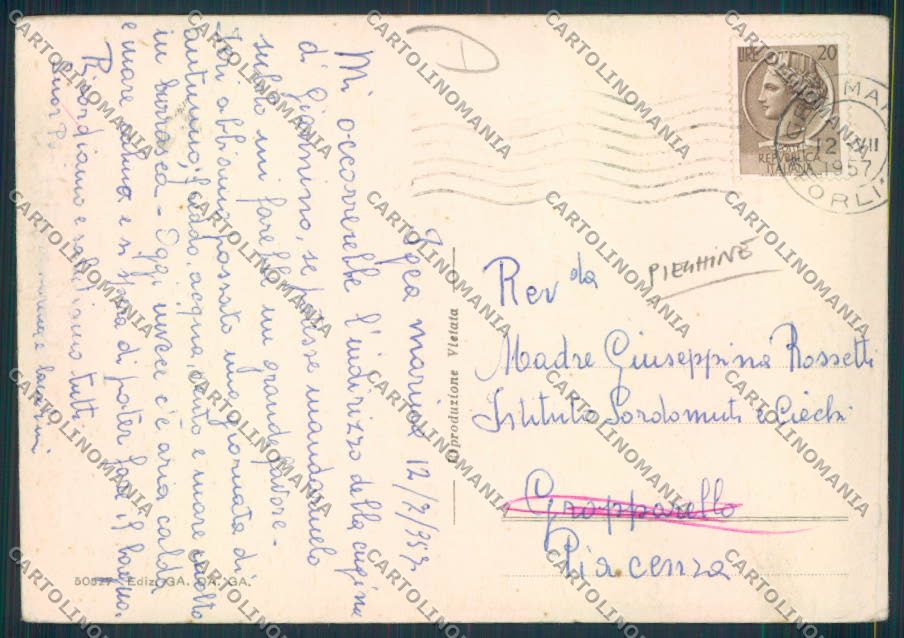 Igea marina 12/7/957
Mi occorrerebbe l'indirizzo della cugina
di Giannino, se potesse mandarmelo
subito mi farebbe un grande favore -
Ieri abbiamo passato una giornata di
autunno, freddo, acqua, vento e mare molto
in burrasca - Oggi invece c'è aria calda
e mare calmo e si spera di poter fare il bagno.
Ricordiamo e salutiamo tutti
LIRE 20
REPVBBLICA
ITALIANA
MAR
12 VII
1957
FORLI
D
PIECHINÈ
Rev da
Madre Giuseppina Rossetti
Istituto Sordomuti e Ciechi
Gropparello
Piacenza
Riproduzione Vietata
50527 - Ediz. GA. DA. GA.
CARTOLINOMANIA